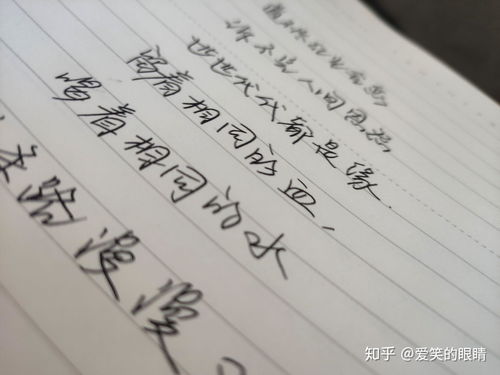 诉不完人间恩怨,
世世代代都是缘.
着相同的血,
喝着相同的水
条路漫漫
知乎 @爱笑的眼睛